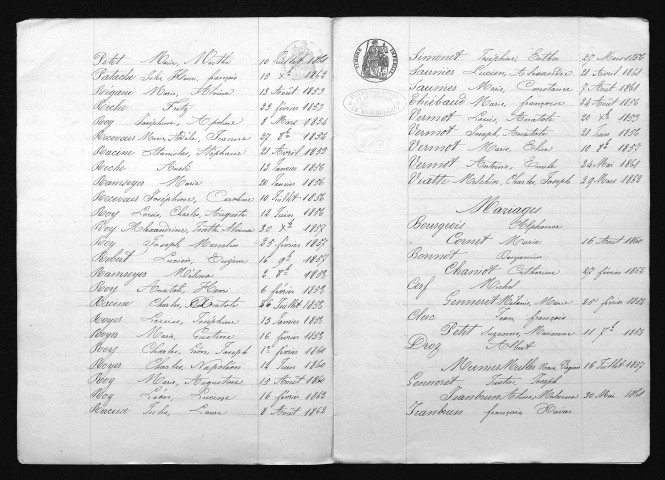 Petit Marie, Marthe 10 Juillet 1861
Pistache Jules Henri, françois 13 Xbre 1862
Marie, Elmina 13 Août 1853
Riche Fritz 23 février 1853
Roy Joséphine, Apoline 8 Mars 1854
Receveur Marie, Adèle, Jeanne 27 8bre 1856
Racine Stanislas, Stéphane 21 Avril 1853
Riche Ameli 13 Janvier 1856
Ramseyer Marie 20 Janvier 1856
Receveur Joséphine, Caroline 10 Juillet 1856
Roy Louis, Charles, Auguste 18 Juin 1856
Roy Alexandrine, 30 Xbre 1857
Roy Joseph Marcelin 25 février 1857
Robert Lucien, Eugène 16 9bre 1857
Ramseyer Mélina 2 8bre 1858
Roy Anatole, Henri 6 février 1858
Racine Charles, Anatole 26 Juillet 1858
Royer Louise, Joséphine 13 Janvier 1858
Royer Marie, Gustine 16 février 1858
Roy Charles, Léon, Joseph 1er février 1860
Royer Charles, Napoléon 14 Juin 1860
Roy Marie, Augustine 19 Août 1860
Roy Léon, Lucine 16 février 1862
Racine Jules, Laure 8 Août 1862
Simonet Joséphine, Esther 27 Mars 1856
Saunier Lucien, Alexandre 21 Août 1861
Saunier Marie, Constance 7 Août 1861
Thiébaud Marie françoise 24 Août 1856
Vermot Louis, Anatole 20 Xbre 1853
Vermot Joseph, Anatole 21 Juin 1856
Vermot Marie, Elisa 10 8bre 1857
Vermot Antoine, Emile 24 Mai 1861
Viatte Melchior, Charles Joseph 29 Mars 1862
Mariages
Bourgeois Alphonse
Cornet Marie 16 Août 1860
Bonnot Benjamin
Chamot Catherine 27 février 1856
Cerf Michel
Genneret Mélanie, Marie 25 février 1854
Clerc Jean françois
Petit Suzanne, Marianne 11 7bre 1854
Droz Albert
Meunier Jeanne 16 Juillet 1857
Genneret Justin, Joseph
Jeanbrun Elise, 30 Mai 1861
Jeanbrun françois Xavier